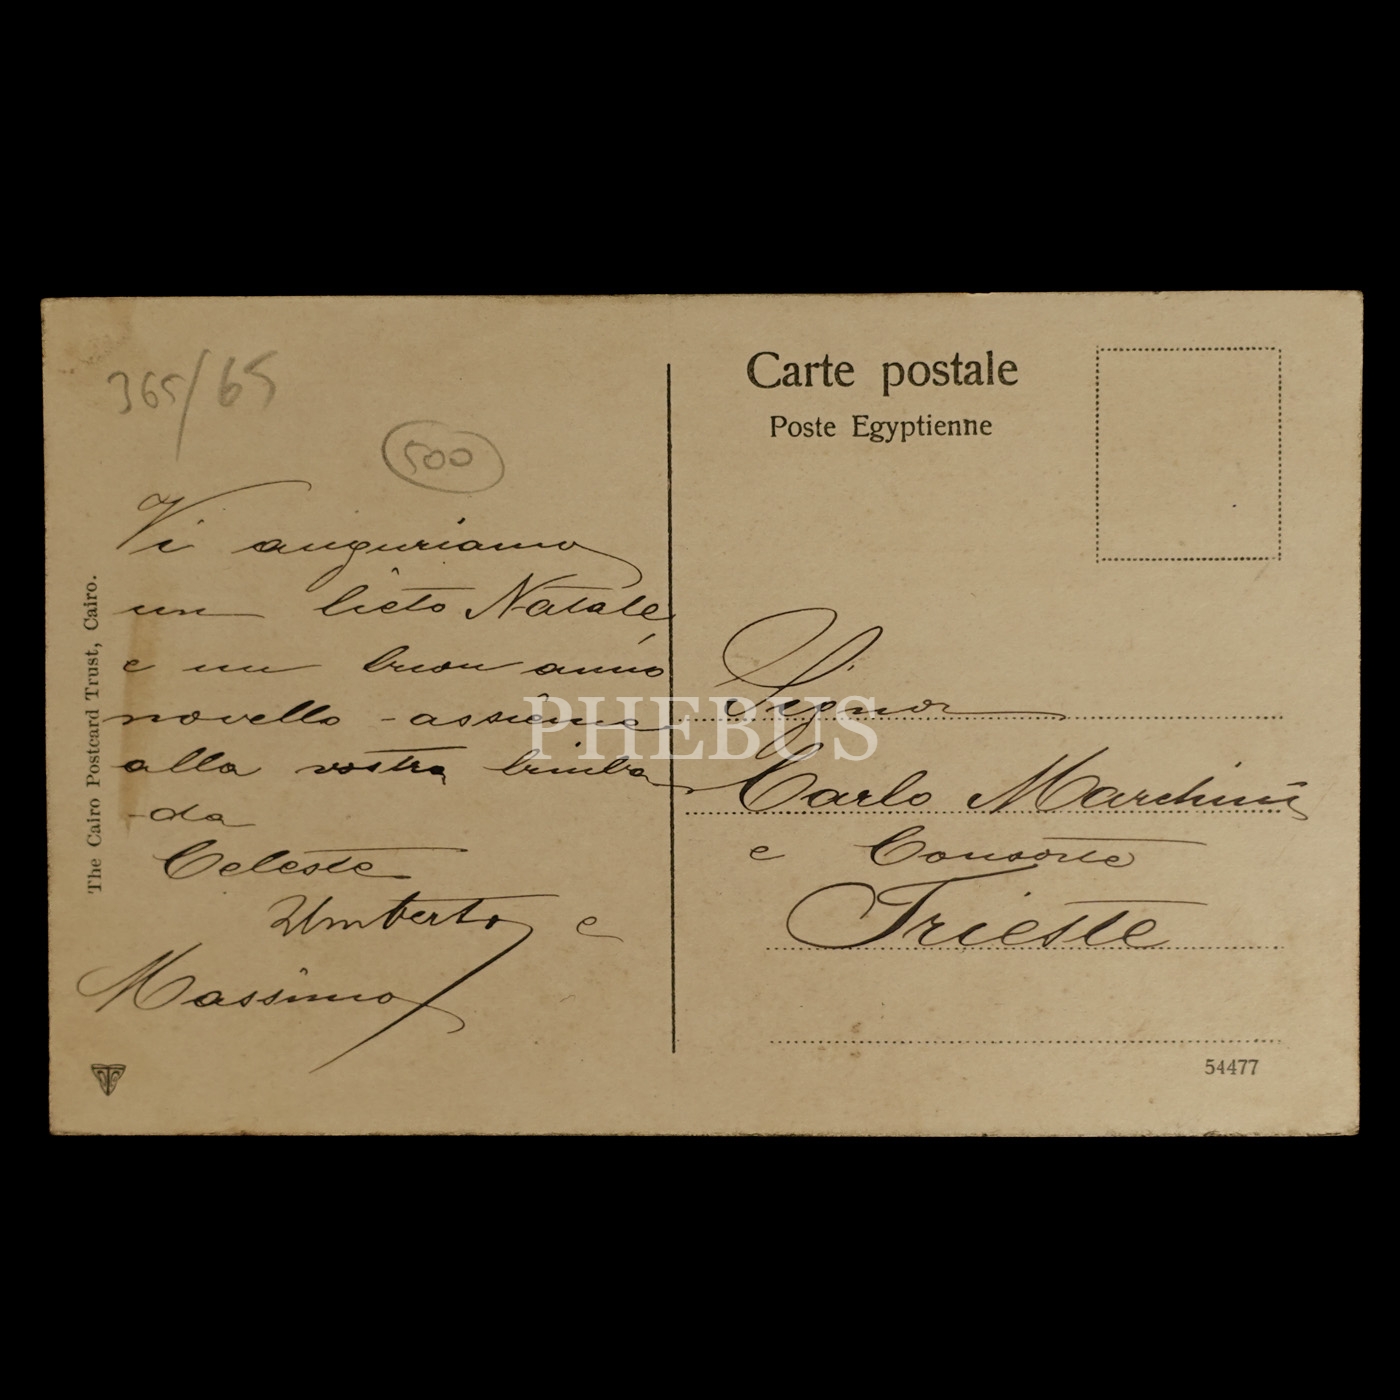 365/65
500
Vi auguriamo
un lieto Natale
e un buon anno
novello - assieme
alla vostra bimba
- da
Celeste
Umberto e
Massimo
The Cairo Postcard Trust, Cairo.
Carte postale
Poste Egyptienne
Signor
Carlo Marchini
e Consorte
Trieste
54477
PHEBUS